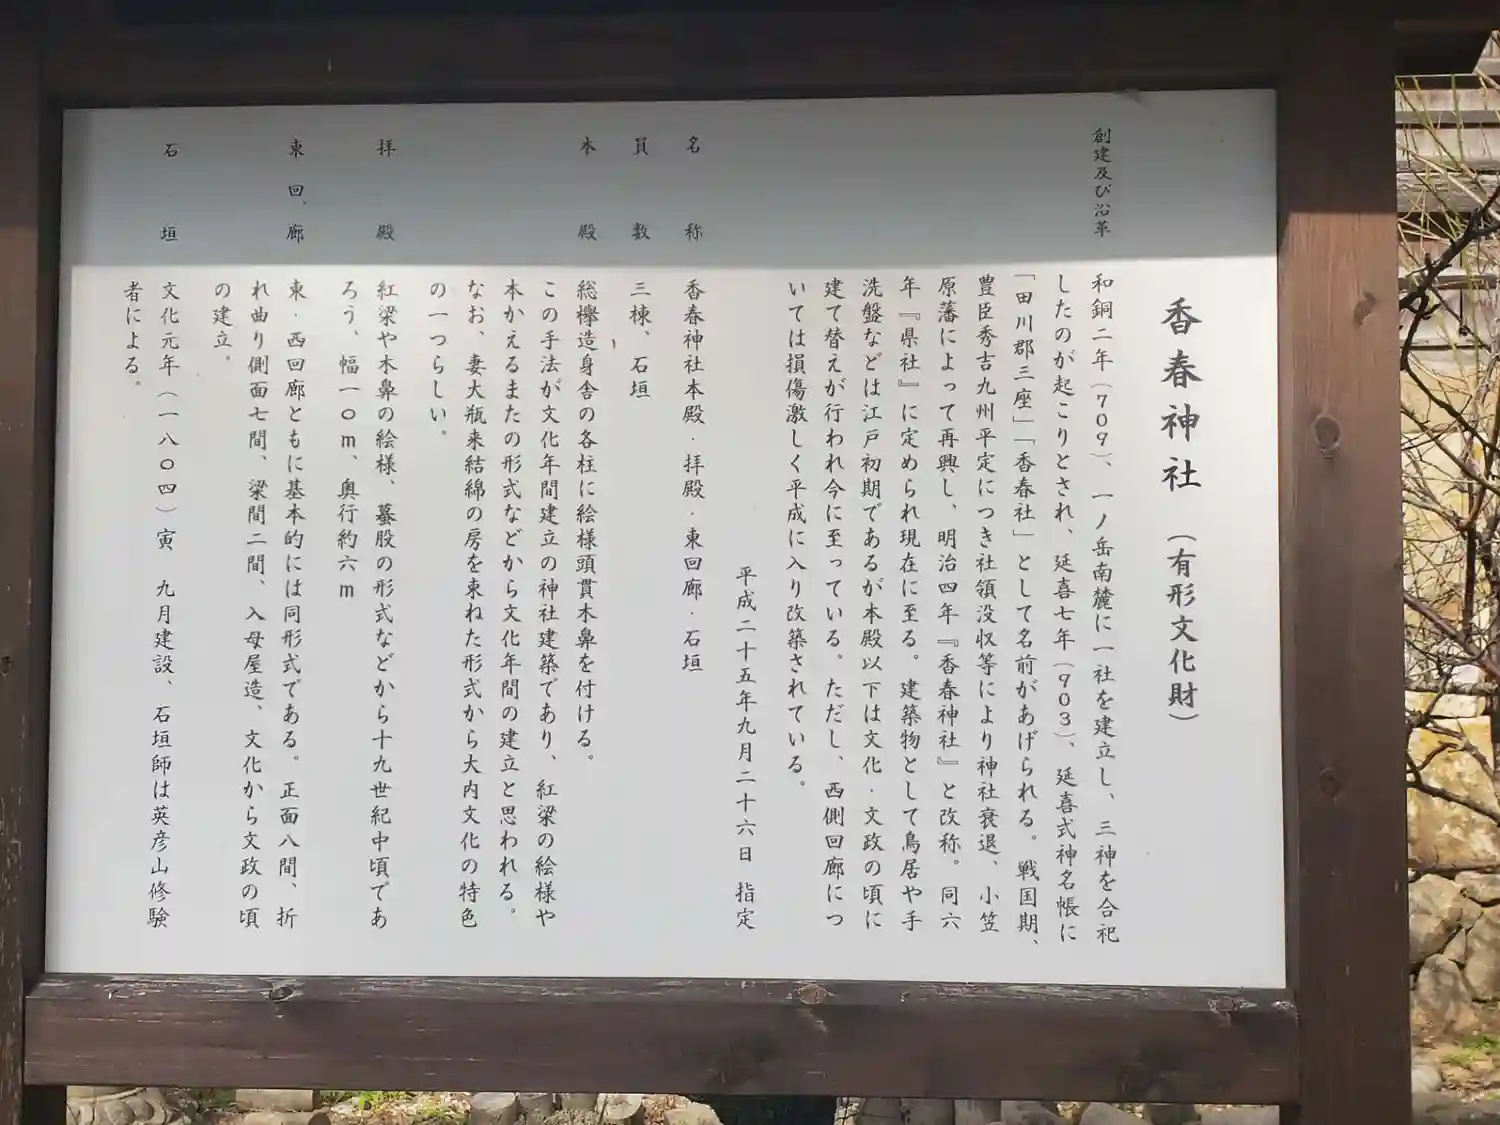 香春神社（有形文化財）
創建及び沿革
和銅二年（709）、一ノ岳南麓に一社を建立し、三神を合祀
したのが起こりとされ、延喜七年（903）、延喜式神名帳に
「田川郡三座」「香春社」として名前があげられる。戦国期、
豊臣秀吉九州平定につき社領没収等により神社衰退、小笠
原藩によって再興し、明治四年『香春神社』と改称。同六
年『県社』に定められ現在に至る。建築物として鳥居や手
洗盤などは江戸初期であるが本殿以下は文化・文政の頃に
建て替えが行われ今に至っている。ただし、西側回廊につ
いては損傷激しく平成に入り改築されている。
平成二十五年九月二十六日 指定
名称 香春神社本殿・拝殿・東回廊・石垣
員数 三棟、石垣
本殿 総欅造身舎の各柱に絵様頭貫木鼻を付ける。
この手法が文化年間建立の神社建築であり、紅梁の絵様や
本かえるまたの形式などから文化年間の建立と思われる。
なお、妻大瓶束結綿の房を束ねた形式から大内文化の特色
の一つらしい。
拝殿 紅梁や木鼻の絵様、蟇股の形式などから十九世紀中頃であ
ろう、幅一〇m、奥行約六m
東回廊 東・西回廊ともに基本的には同形式である。正面八間、折
れ曲り側面七間、梁間二間、入母屋造、文化から文政の頃
の建立。
石垣 文化元年（一八〇四）寅 九月建設、石垣師は英彦山修験
者による。